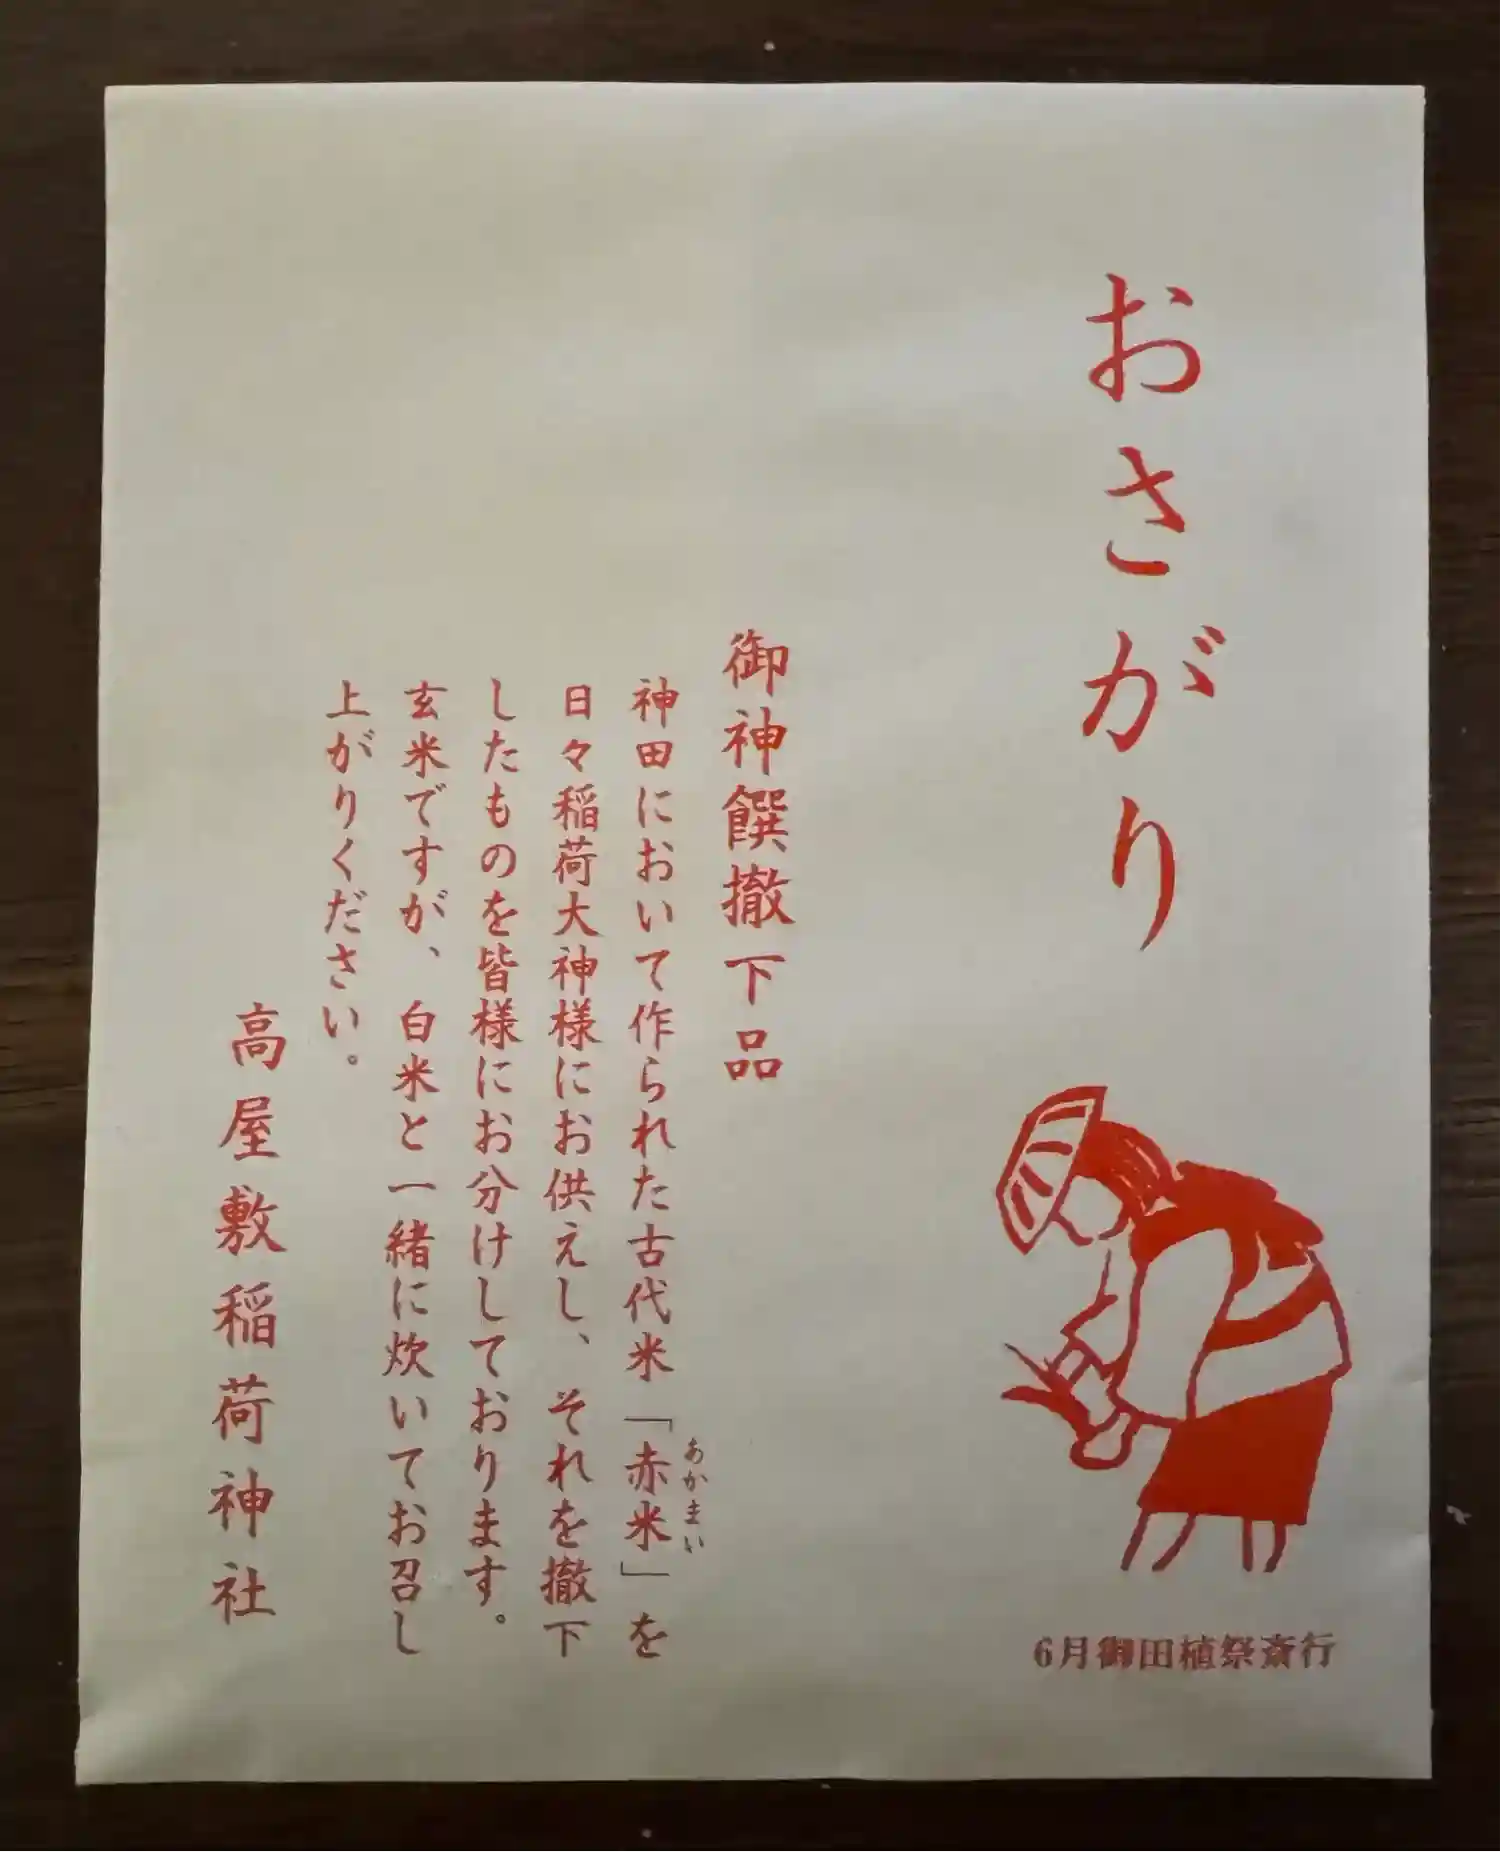 おさがり
6月御田植祭斎行
御神饌撤下品
神田において作られた古代米「赤米」を
あかまい
日々稲荷大神様にお供えし、それを撤下
したものを皆様にお分けしております。
玄米ですが、白米と一緒に炊いてお召し
上がりください。
高屋敷稲荷神社